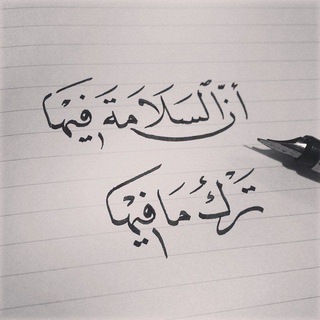 أنّ السَلَامَةَ فِيهَا
تَرْكُ مَا فِيهَا